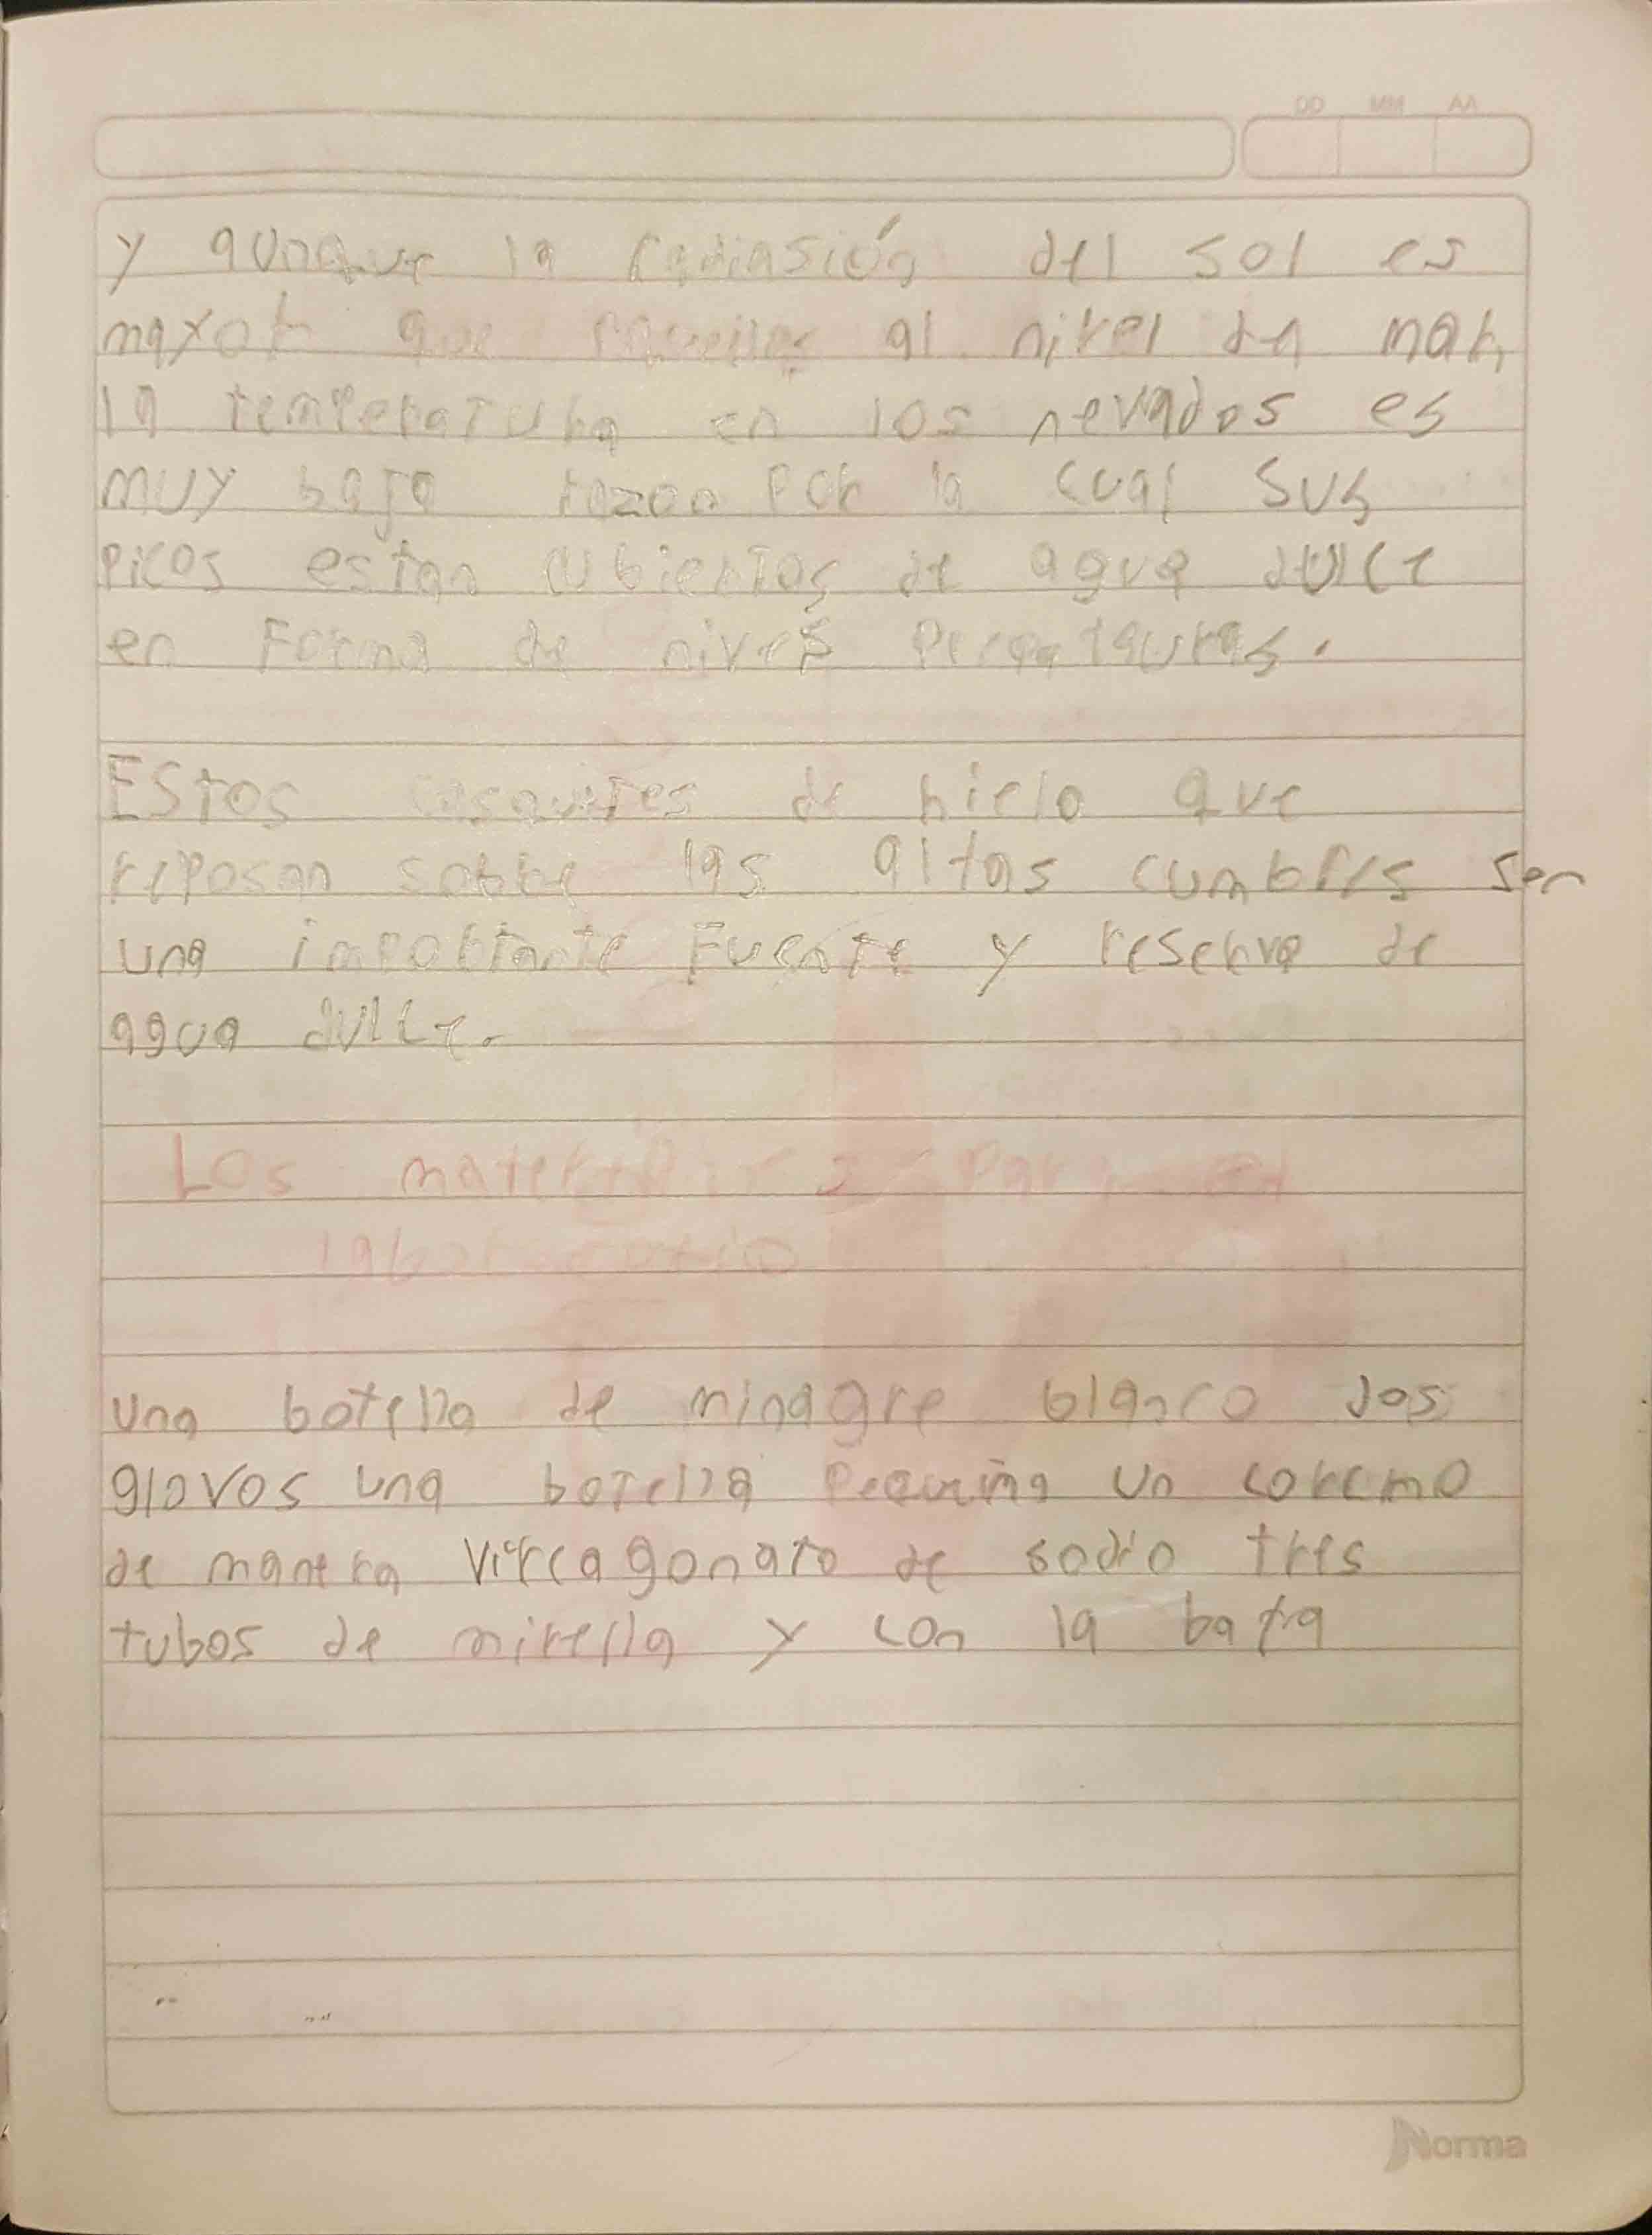 DD MM AA
y aunque la radiasión del sol es
mayor que al nivel de mar,
la temperatura en los nevados es
muy bajo razon por la cual sus
picos estan cubiertos de agua dulce
en Forma de nives
Estos casquetes de hielo que
reposan sobre las altas cumbres son
una importante Fuente y reserva de
agua dulce.
Los materiales para el
una botella de minagre blanco dos
glovos una botella pequeña un
de manera vircagonato de sodio tres
tubos de mirella y con la bata
Norma